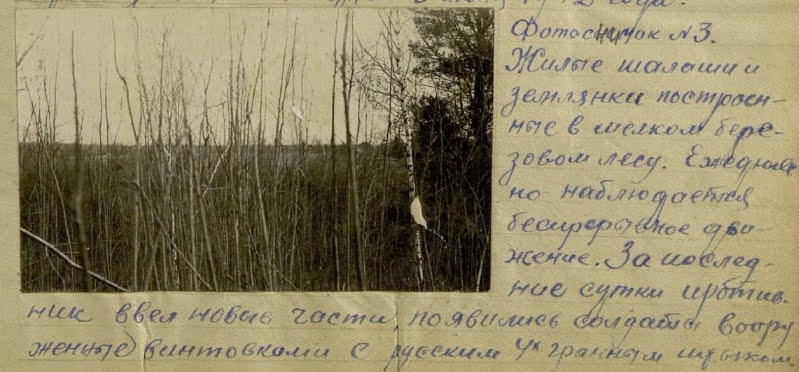 1942 года.
Фотоснимок №3.
Жилые шалаши и
землянки построен-
ные в мелком бере-
зовом лесу. Ежеднев
но наблюдается
бесперерывное дви-
жение. За послед-
ние сутки против-
ник ввел новые части, появились солдаты воору
женные винтовками с русским 4х гранным штыком.